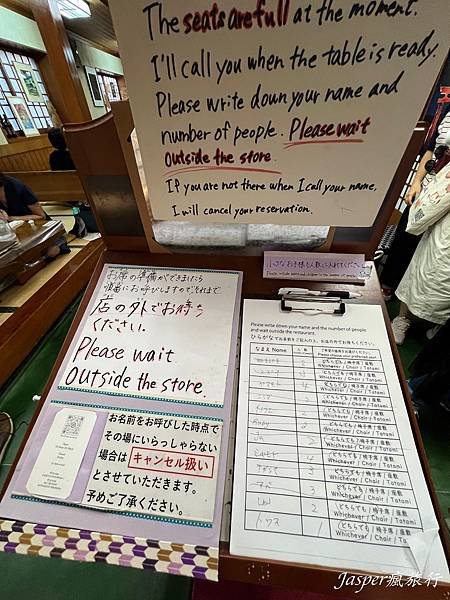 The seats are full at the moment.
I'll call you when the table is ready.
Please write down your name and
number of people. Please wait
outside the store.
If you are not there when I call your name,
I will cancel your reservation.
お席の準備ができましたら
順番にお呼びしますのでそれまで
店の外でお待ち
ください。
Please wait
outside the store.
お名前をお呼びした時点で
その場にいらっしゃらない
場合はキャンセル扱い
とさせていただきます。
予めご了承ください。
小さなお子様も人数に入れて下さい
Please write down your name and the number of people
and wait outside the restaurant.
ひらがなでお名前をご記入の上、お店の外でお待ち下さい。
なまえ Name
人数
Please choose your preferred seat.
どちらでも / 椅子席 / 座敷
Whichever / Chair / Tatami
どちらでも / 椅子席 / 座敷
Whichever / Chair / Tatami
どちらでも / 椅子席 / 座敷
Whichever / Chair / Tatami
どちらでも / 椅子席 / 座敷
Whichever / Chair / Tatami
どちらでも / 椅子席 / 座敷
Whichever / Chair / Tatami
どちらでも / 椅子席 / 座敷
Whichever / Chair / Tatami
どちらでも / 椅子席 / 座敷
Whichever / Chair / Tatami
どちらでも / 椅子席 / 座敷
Whichever / Chair / Tatami
どちらでも / 椅子席 / 座敷
Whichever / Chair / Tatami
どちらでも / 椅子席 / 座敷
Whichever / Chair / Tatami
どちらでも / 椅子席 / 座敷
Whichever / Chair / Tatami
Jasper瘋旅行